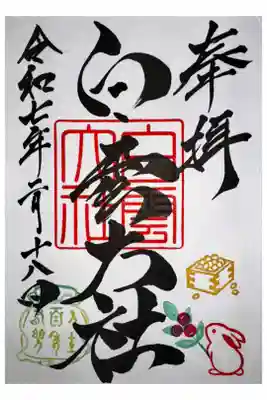 奉拝
出雲大社
令和七年二月十八日
出雲
大社